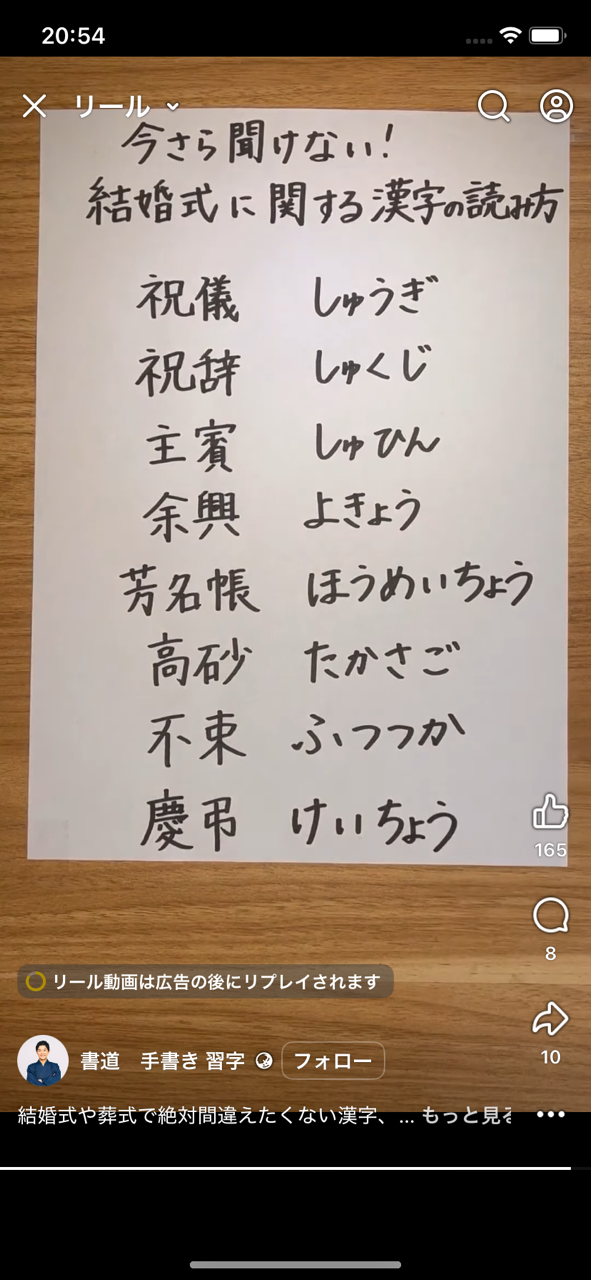 20:54
リール
今さら聞けない!
結婚式に関する漢字の読み方
祝儀 しゅうぎ
祝辞 しゅくじ
主賓 しゅひん
余興 よきょう
芳名帳 ほうめいちょう
高砂 たかさご
不束 ふつつか
慶弔 けいちょう
165
8
リール動画は広告の後にリプレイされます
10
書道 手書き 習字 フォロー
結婚式や葬式で絶対間違えたくない漢字、... もっと見る